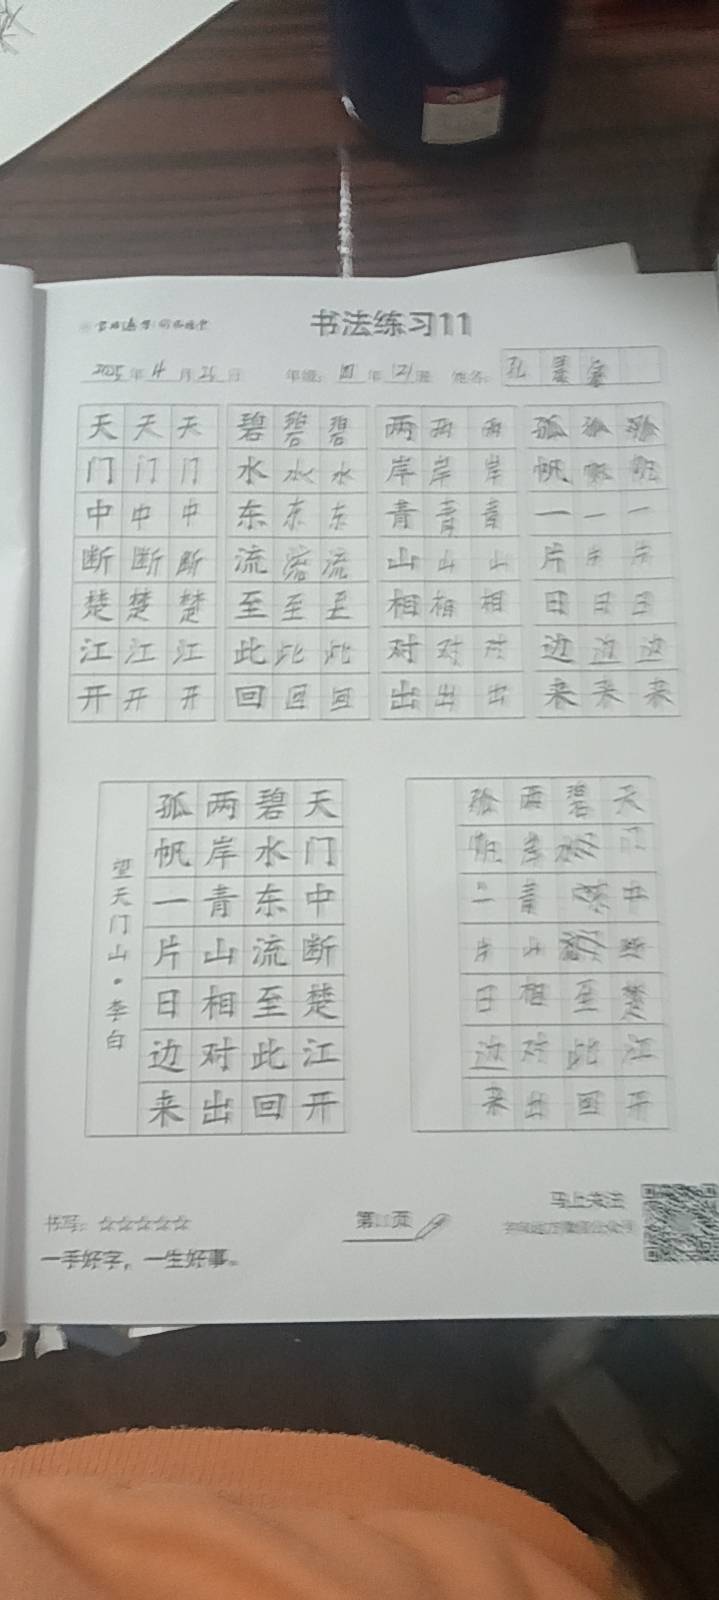 书法练习11
2025年4月25日 年级：四年(2)班 姓名：孔
天天天 碧碧碧 两两两 孤孤孤
门门门 水水水 岸岸岸 帆帆帆
中中中 东东东 青青青 一一一
断断断 流流流 山山山 片片片
楚楚楚 至至至 相相相 日日日
江江江 此此此 对对对 边边边
开开开 回回回 出出出 来来来
天门中断楚江开
碧水东流至此回
两岸青山相对出
孤帆一片日边来
望天门山·李白
天门中断楚江开
碧水 至此回
两岸青山相对出
孤帆一片日边来
书写：☆☆☆☆☆
一手好字，一生好事。
第11页
马上关注